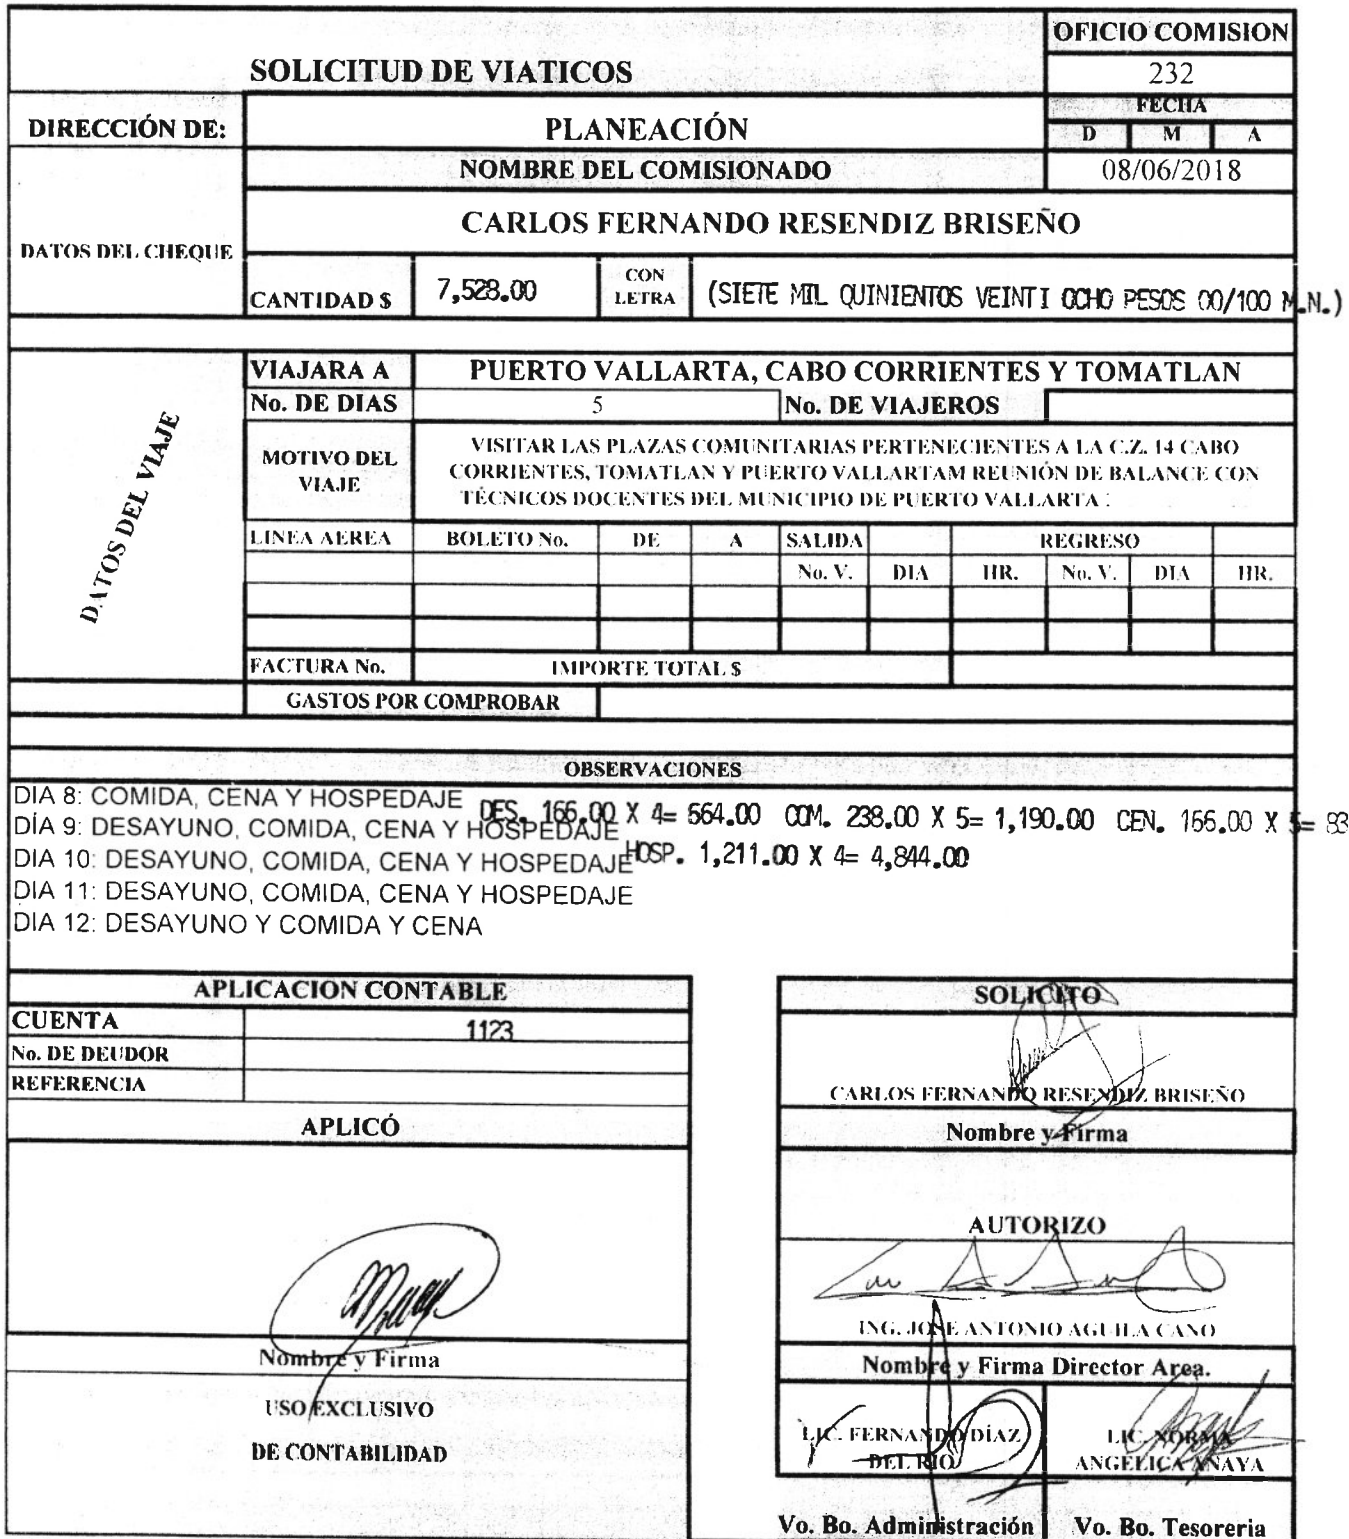 OFICIO COMISION
SOLICITUD DE VIATICOS
232
FECHA
DIRECCIÓN DE:
PLANEACIÓN
D M A
NOMBRE DEL COMISIONADO
08/06/2018
CARLOS FERNANDO RESENDIZ BRISEÑO
DATOS DEL CHEQUE
CANTIDAD $
7,528.00
CON
LETRA
(SIETE MIL QUINIENTOS VEINTI OCHO PESOS 00/100 M.N.)
DATOS DEL VIAJE
VIAJARA A
PUERTO VALLARTA, CABO CORRIENTES Y TOMATLAN
No. DE DIAS
5
No. DE VIAJEROS
MOTIVO DEL
VIAJE
VISITAR LAS PLAZAS COMUNITARIAS PERTENECIENTES A LA C.Z. 14 CABO
CORRIENTES, TOMATLAN Y PUERTO VALLARTAM REUNIÓN DE BALANCE CON
TÉCNICOS DOCENTES DEL MUNICIPIO DE PUERTO VALLARTA
LINEA AEREA BOLETO No. DE A SALIDA REGRESO
No. V. DIA HR. No. V. DIA HR.
FACTURA No. IMPORTE TOTAL $
GASTOS POR COMPROBAR
OBSERVACIONES
DIA 8: COMIDA, CENA Y HOSPEDAJE
DES. 166.00 X 4= 664.00 COM. 238.00 X 5= 1,190.00 CEN. 166.00 X 5= 83
DÍA 9: DESAYUNO, COMIDA, CENA Y HOSPEDAJE
DIA 10: DESAYUNO, COMIDA, CENA Y HOSPEDAJE
HOSP. 1,211.00 X 4= 4,844.00
DIA 11: DESAYUNO, COMIDA, CENA Y HOSPEDAJE
DIA 12: DESAYUNO Y COMIDA Y CENA
APLICACION CONTABLE
CUENTA
1123
No. DE DEUDOR
REFERENCIA
APLICÓ
Nombre y Firma
USO EXCLUSIVO
DE CONTABILIDAD
SOLICITO
CARLOS FERNANDO RESENDIZ BRISEÑO
Nombre y Firma
AUTORIZO
ING. JOSE ANTONIO AGUILA CANO
Nombre y Firma Director Area.
LIC. FERNANDO DÍAZ
DEL RIO
LIC. NORMA
ANGELICA ANAYA
Vo. Bo. Administración
Vo. Bo. Tesoreria